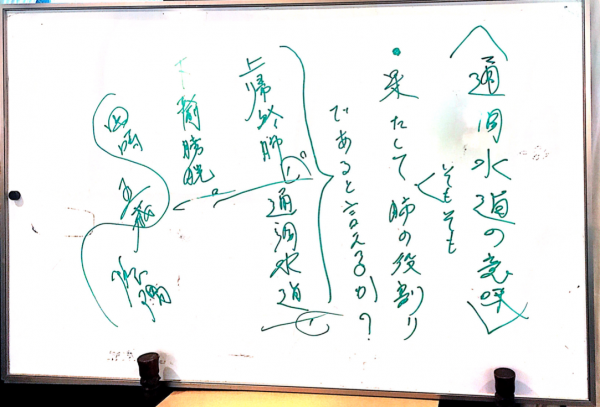 〈通調水道の意味〉
そもそも
・果たして肺の役割り
であると言えるか？
上帰於肺。通調水道
下輸膀胱。
四時 五臓 陰陽